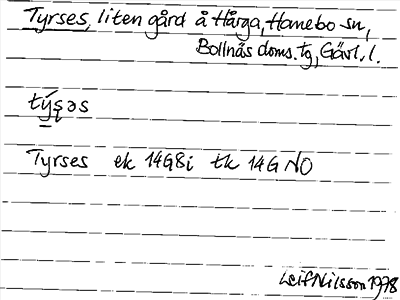 Tyrses, liten gård å Hårga, Hanebo sn,
Bollnäs doms. tg, Gävl. l.
tý̱s̨əs
Tyrses ek 14G8i tk 14G NO
Leif Nilsson 1978